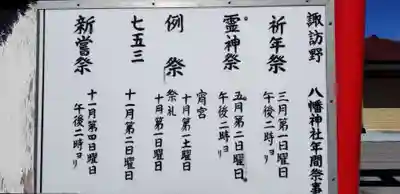 諏訪野 八幡神社年間祭事
祈年祭
三月第一日曜日
午後二時ヨリ
霊神祭
五月第二日曜日
午後二時ヨリ
例祭
宵宮
十月第一土曜日
祭礼
十月第一日曜日
七五三
十一月第二日曜日
新嘗祭
十一月第四日曜日
午後二時ヨリ